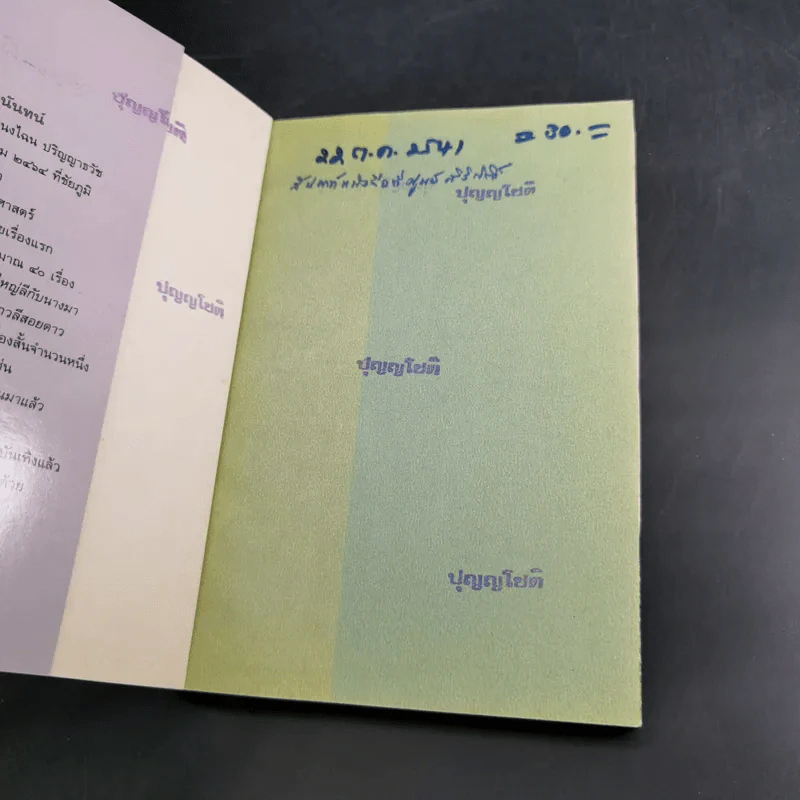 นันทน์
นงไฉน ปริญญาธวัช
ม ๒๔๖๔ ที่ชัยภูมิ
ศาสตร์
ยเรื่องแรก
มาณ ๔๐ เรื่อง
ใหญ่ลีกับนางมา
าวลีสอยดาว
องสั้นจำนวนหนึ่ง
ช่น
นมาแล้ว
บันเทิงแล้ว
ด้วย
ปุญญโชติ
ปุญญโชติ
22 ต.ค. 2541
= 30.=
สัปดาห์หนังสือ
ปุญญโชติ
ปุญญโชติ
ปุญญโชติ